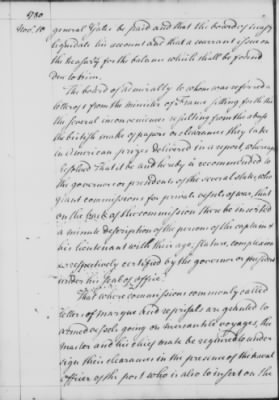 1780
Novr. 10
general Gates be paid and that the board of treasy
liquidate his account and that a warrant issue on
the treasury for the balance which shall be found
due to him.
The board of admiralty to whom was referred a
letter of from the minister of France setting forth the
the several inconveniences resulting from the abuse
the british make of papers or clearances they take
in American prizes delivered in a report whereupon
Resolved That it be and hereby is recommended to
the governors or presidents of the several states, who
grant commissions for private vessels of war, that
on the back of the commission there be inserted
a minute description of the persons of the captain &
his lieutenant with their age, stature, complexion
respectively certified by the governor or president
under his seal of office.
That where commissions commonly called
letters of marque and reprisals are granted to
armed vessels going on mercantile voyages, the
master and his chief mate be required to under
sign their clearances in the presence of the naval
officer of the port who is also to insert on the